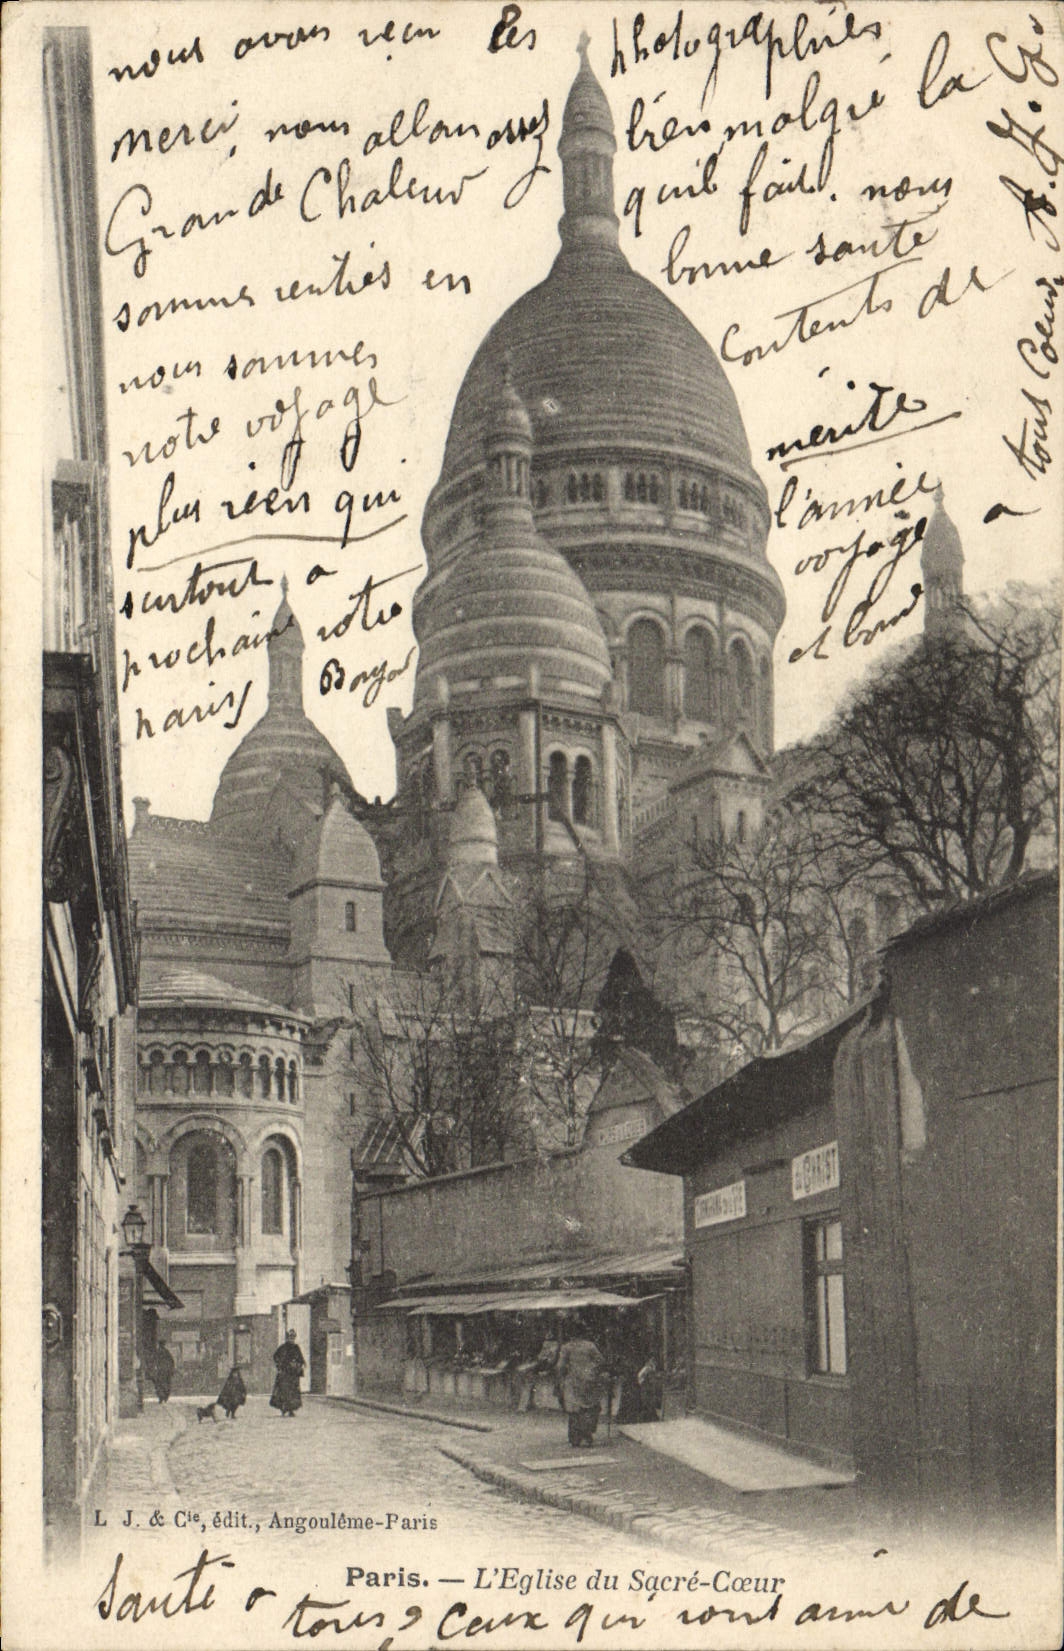 nous avons reçu les photographies
merci, nous allons assez bien malgré la
Grande Chaleur qu'il fait. nous
sommes rentrés en bonne santé
nous sommes contents de
notre voyage mérite
plus rien qui
surtout a l'année
prochaine votre voyage
paris et bonne
santé a tous, ceux qui sont de
a tout Coeur
DU CHRIST
L J. & Cie, édit., Angoulême-Paris
Paris. — L'Eglise du Sacré-Cœur